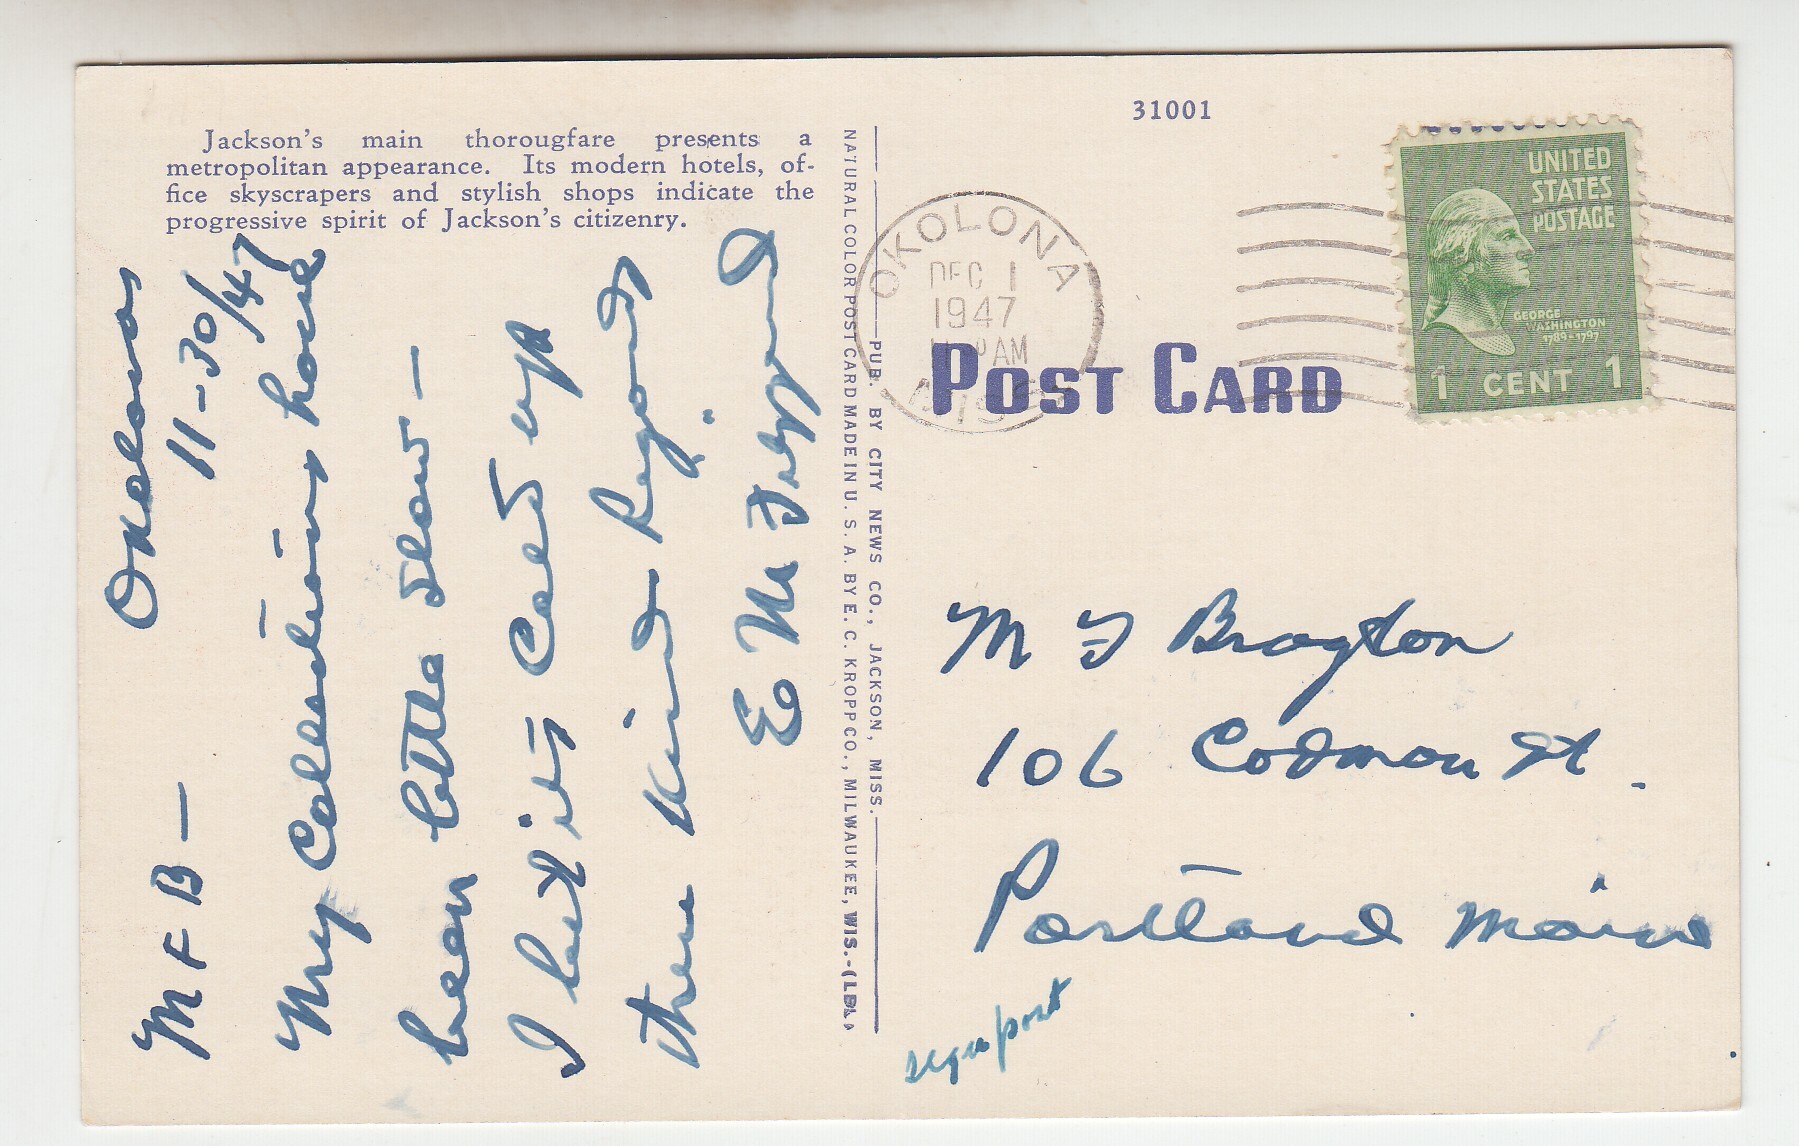 31001
Jackson's main thorougfare presents a
metropolitan appearance. Its modern hotels, of-
fice skyscrapers and stylish shops indicate the
progressive spirit of Jackson's citizenry.
Okolona
11-30/47
M F B —
My Collections have
been little slow —
I but it's
then Kind Regards
E M
NATURAL COLOR POST CARD MADE IN U. S. A. BY E. C. KROPP CO., MILWAUKEE, WIS.-
PUB. BY CITY NEWS CO., JACKSON, MISS.
OKOLONA
DEC 1
1947
PM
MISS
UNITED
STATES
POSTAGE
GEORGE
WASHINGTON
1789-1797
1 CENT 1
POST CARD
M F Brayton
106 Codman St.
Portland Maine